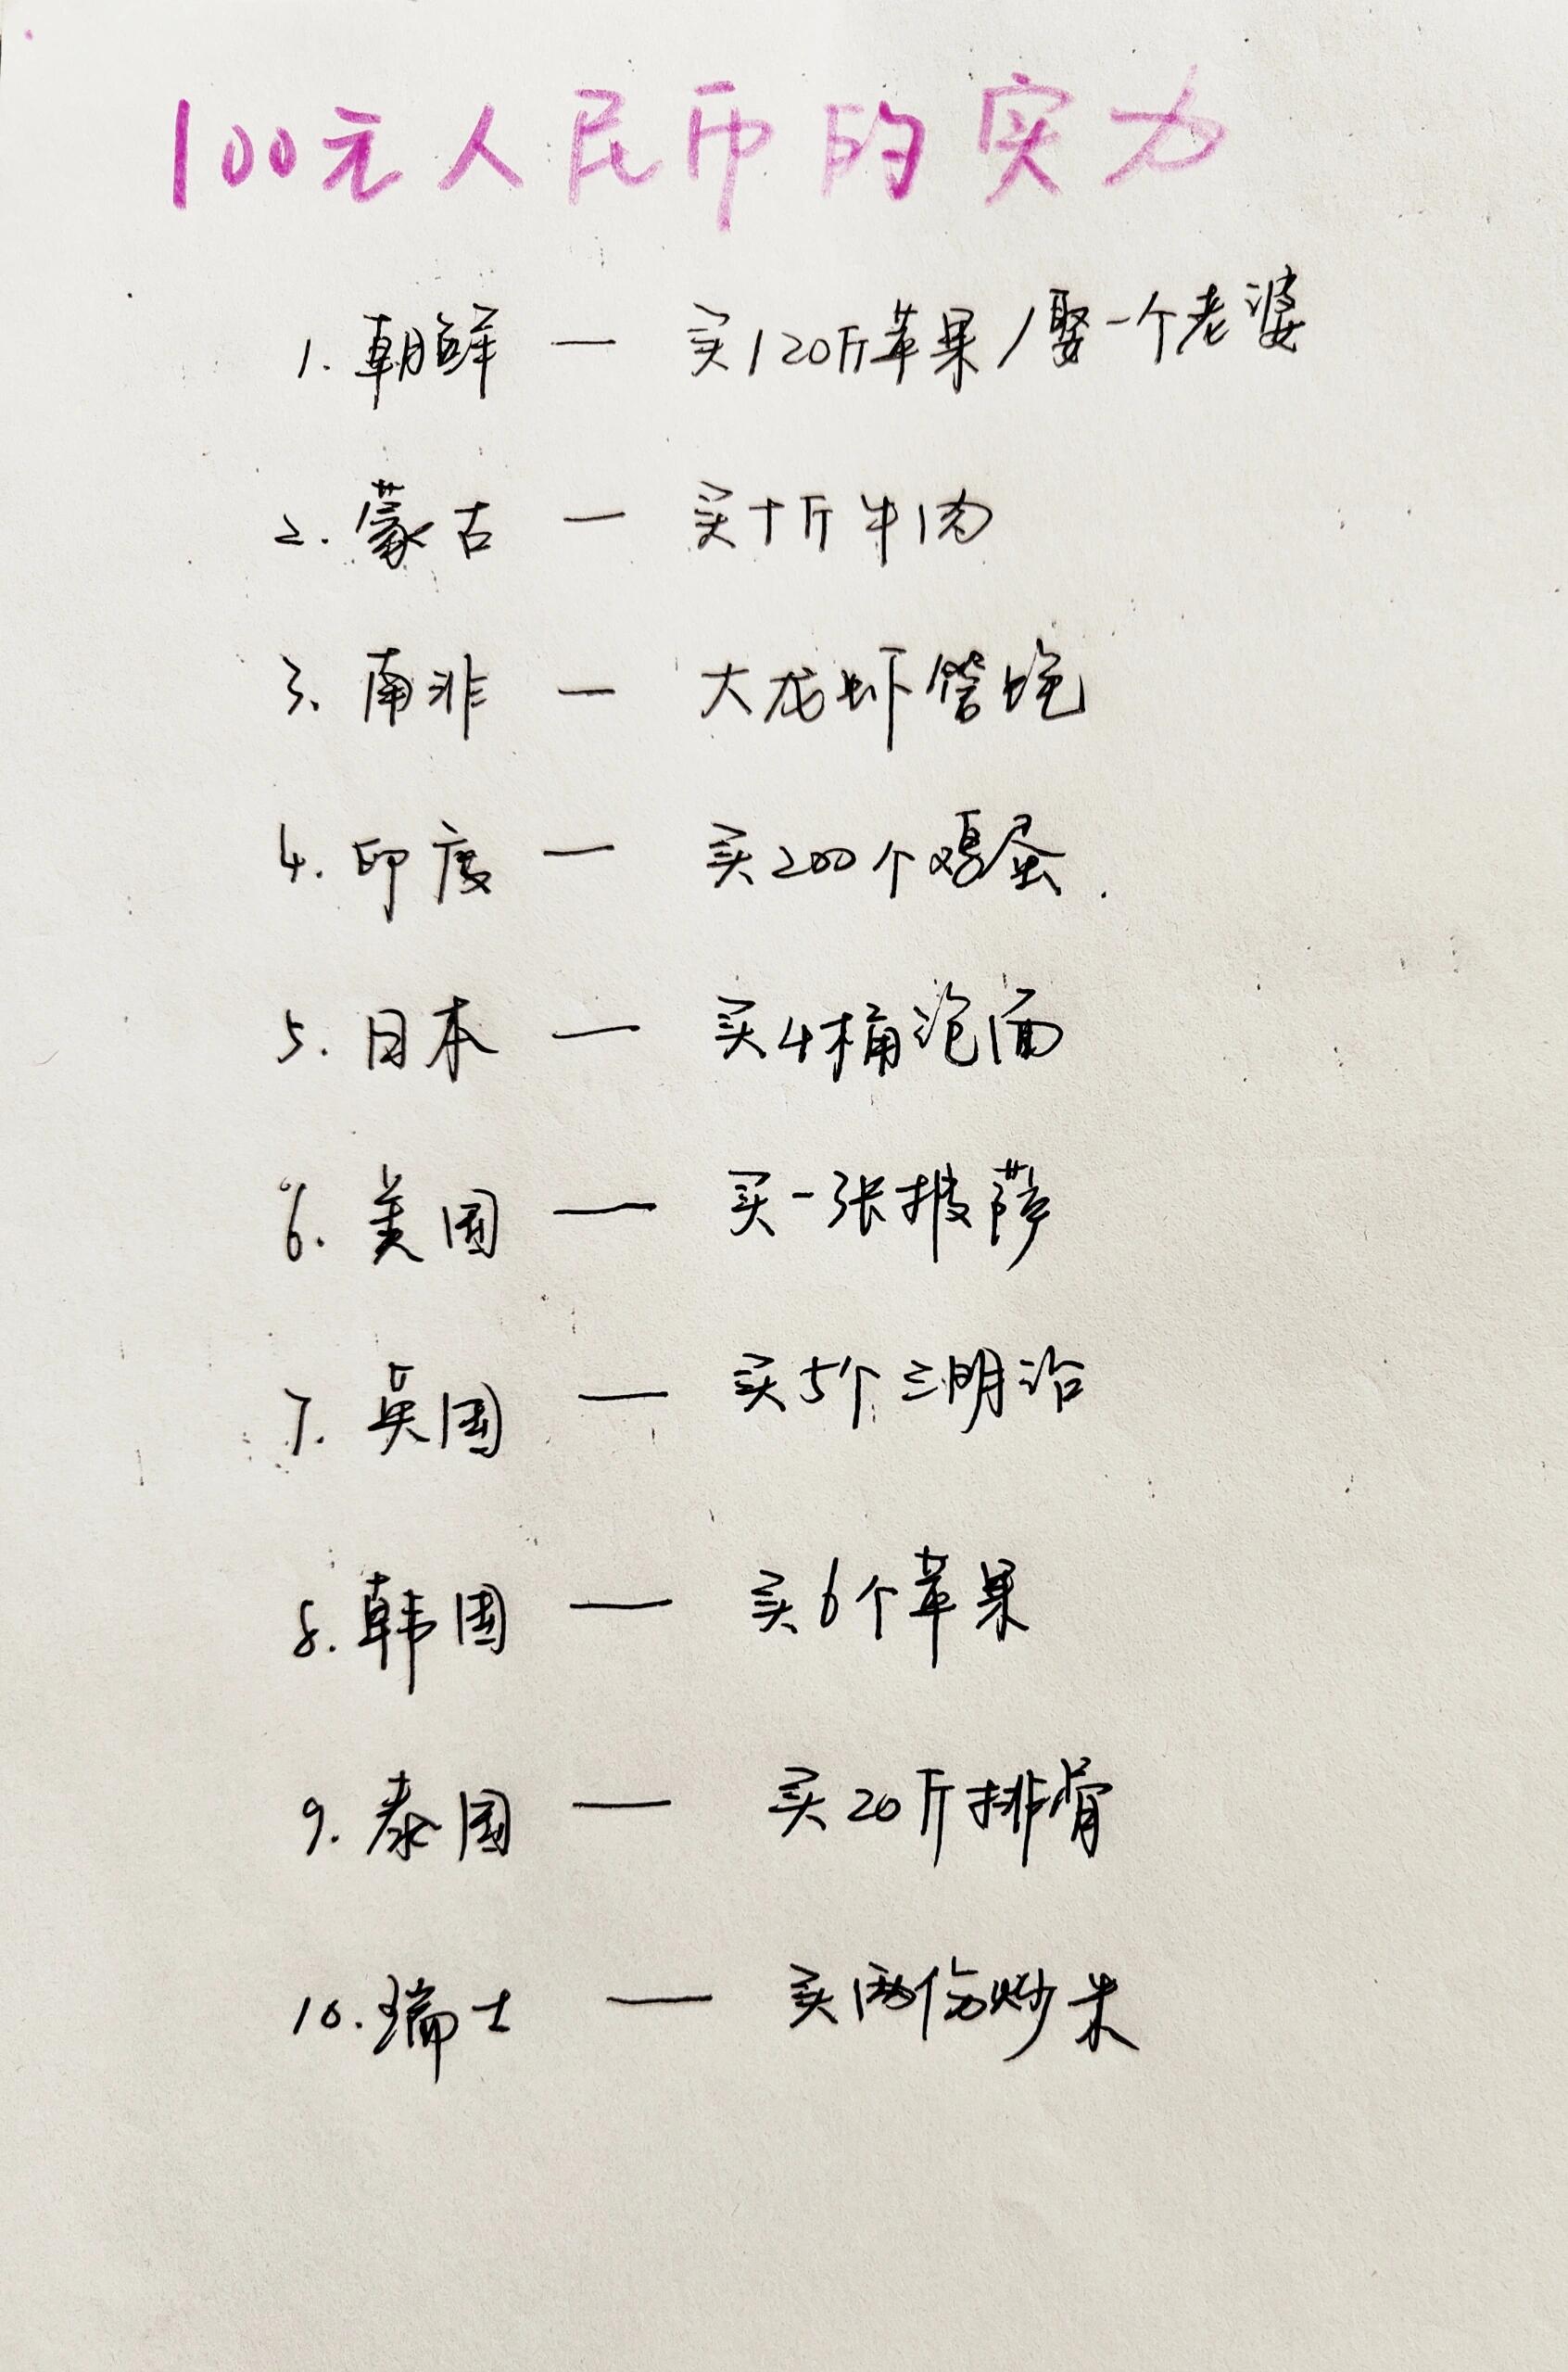 100元人民币的实力
1. 朝鲜 — 买120斤苹果/娶一个老婆
2. 蒙古 — 买十斤牛肉
3、南非 — 大龙虾管饱
4. 印度 — 买200个鸡蛋.
5. 日本 — 买4桶泡面
6. 美国 — 买一张披萨
7. 英国 — 买5个三明治
8. 韩国 — 买6个苹果
9. 泰国 — 买20斤排骨
10. 瑞士 — 买两份炒米